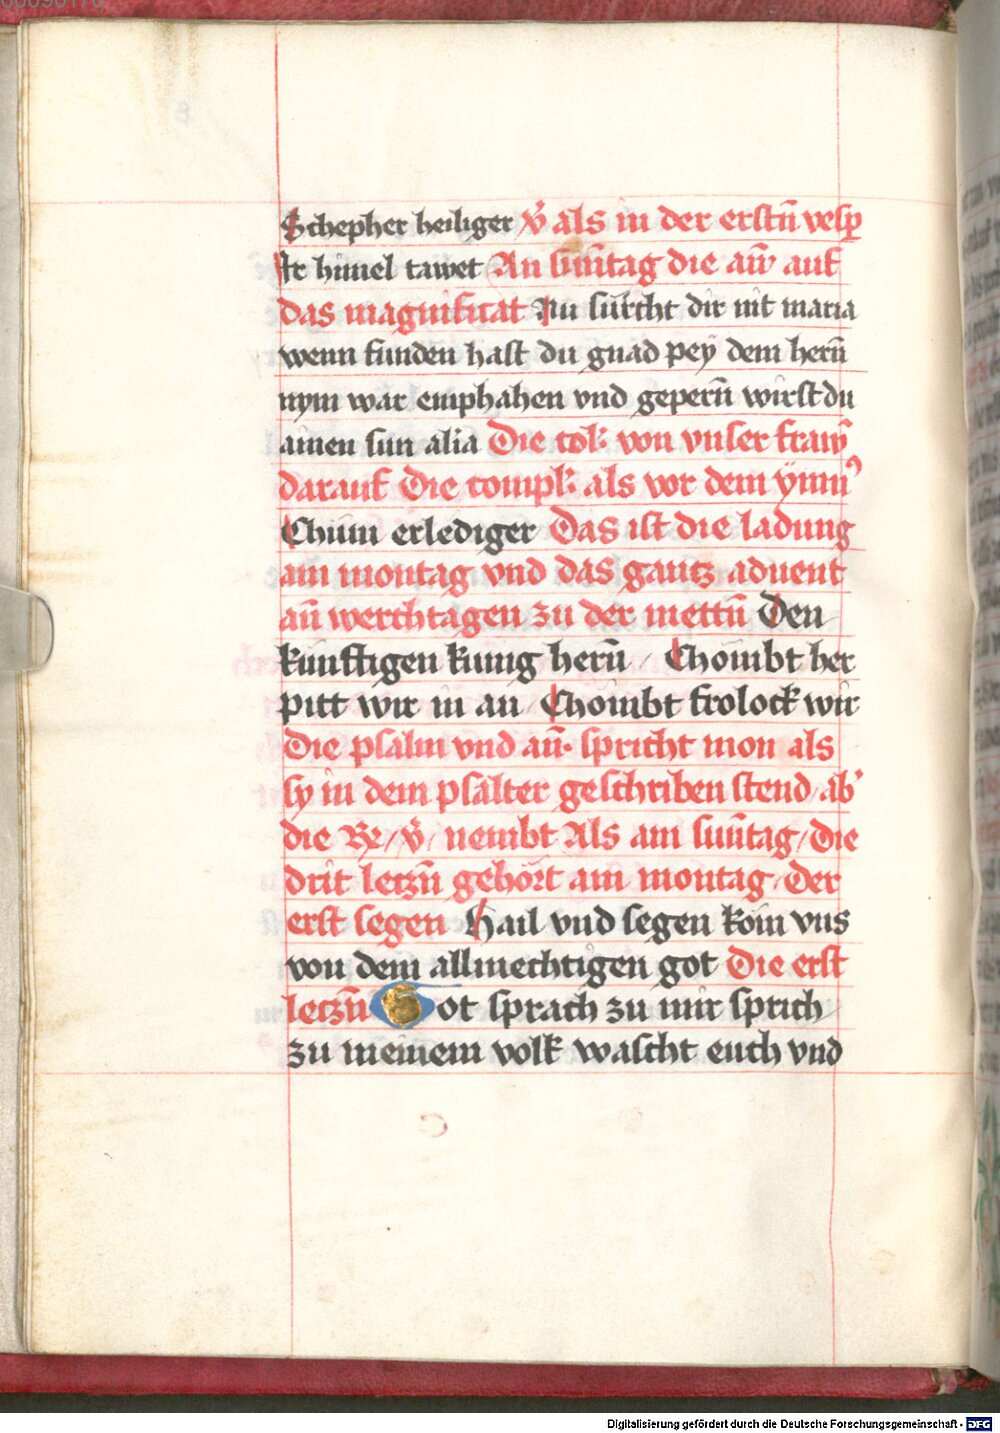 Schepher heiliger v̄ als in der erstn̄ vesp
Ir himel tawet An sūntag die an̄ auf
das magnificat Nu fürcht dir nit maria
wenn funden hast du gnad pey dem hern̄
nym war emphahen vnd gepern̄ wirst du
ainen sun alīa Die col: von vnser frawn̄
darauf Die compl: als vor dem ymn̄
Chūm erlediger Das ist die ladung
am montag vnd das gantz aduent
an̄ werchtagen zu der mettn̄ Den
künfftigen kunig hern̄ / Chōmbt her
pitt wir in an Chōmbt frolock wir
Die psalm vnd an̄ spricht mon als
sy in dem psalter geschriben stend / ab
die Re / v̄ / nembt Als am sūntag / Die
drit letzn̄ gehört am montag / Der
erst segen Hail vnd segen kōm vns
von dem allmechtigen got Die erst
letzn̄ Got sprach zu mir sprich
zu meinem volk wascht euch vnd
Digitalisierung gefördert durch die Deutsche Forschungsgemeinschaft - DFG